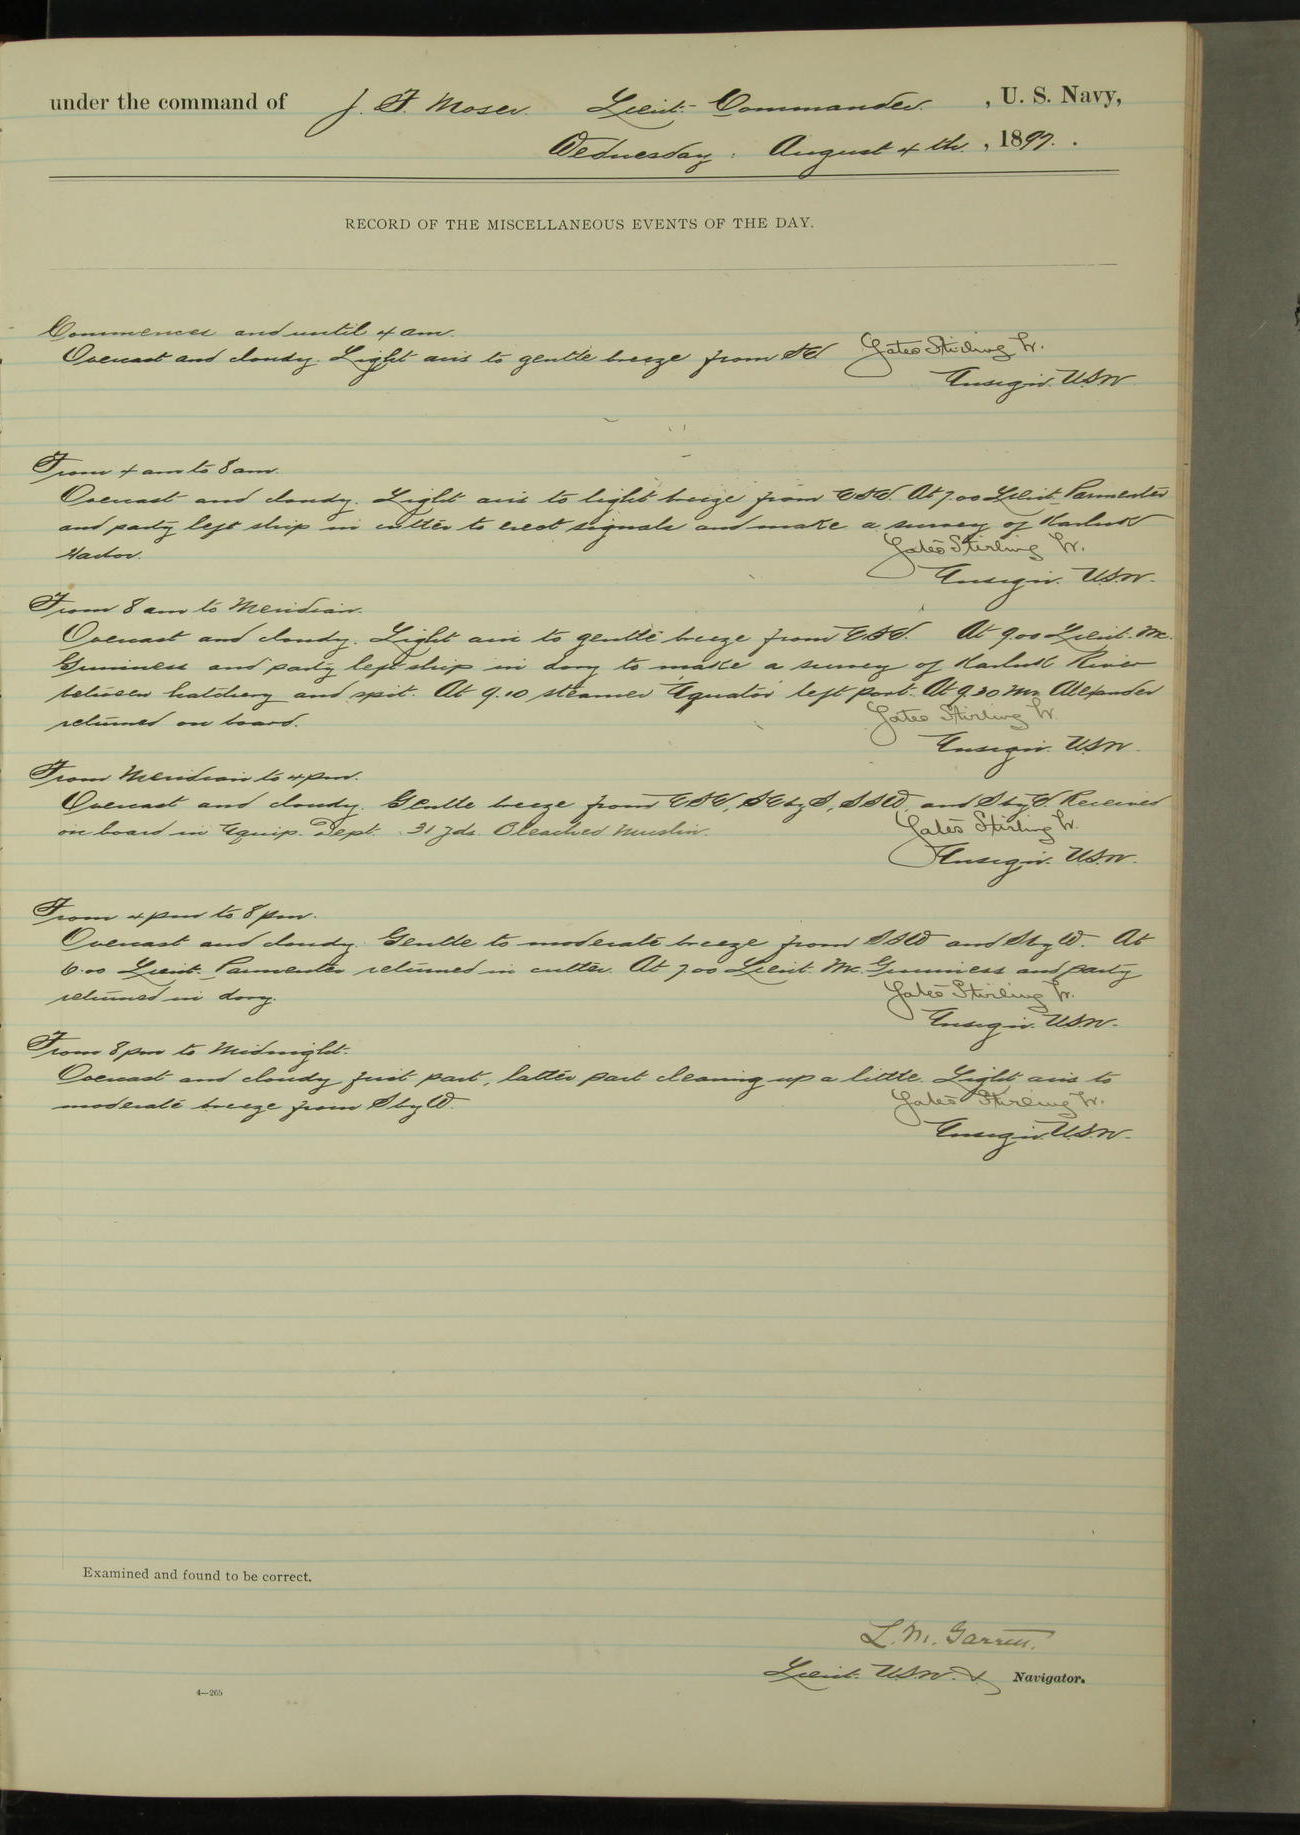 under the command of J. F. Moser. Lieut. Commander. , U. S. Navy,
Wednesday. August 4th. , 1897. .
RECORD OF THE MISCELLANEOUS EVENTS OF THE DAY.
Commences and until 4 am.
Overcast and cloudy. Light airs to gentle breeze from Yates Stirling Jr.
Ensign. U.S.N.
From 4 am to 8 am.
Overcast and cloudy. Light airs to light breeze from ESE. At 7.00 Lieut. Parmenter
and party left ship in cutter to erect signals and make a survey of Karluk
Harbor. Yates Stirling Jr.
Ensign. U.S.N.
From 8 am to Meridian.
Overcast and cloudy. Light airs to gentle breeze from ESE. At 9.00 Lieut. Mc.
Guinness and party left ship in dory to make a survey of Karluk River
between hatchery and spit. At 9.10 steamer 'Equator' left port. At 9.30 Mr. Alexander
returned on board. Yates Stirling Jr.
Ensign. U.S.N.
From Meridian to 4 pm.
Overcast and cloudy. Gentle breeze from ESE, SEbyS, SSW, and SbyE. Received
on board in Equip. Dept. 31 yds. Bleached Muslin. Yates Stirling Jr.
Ensign. U.S.N.
From 4 pm to 8 pm.
Overcast and cloudy. Gentle to moderate breeze from SSW and SbyW. At
6.00 Lieut. Parmenter returned in cutter. At 7.00 Lieut. Mc. Guinness and party
returned in dory. Yates Stirling Jr.
Ensign. U.S.N.
From 8 pm to Midnight.
Overcast and cloudy first part, latter part clearing up a little. Light airs to
moderate breeze from SbyW. Yates Stirling Jr.
Ensign. U.S.N.
Examined and found to be correct.
L. M. Garrett.
Lieut. U.S.N. & Navigator.
4—265